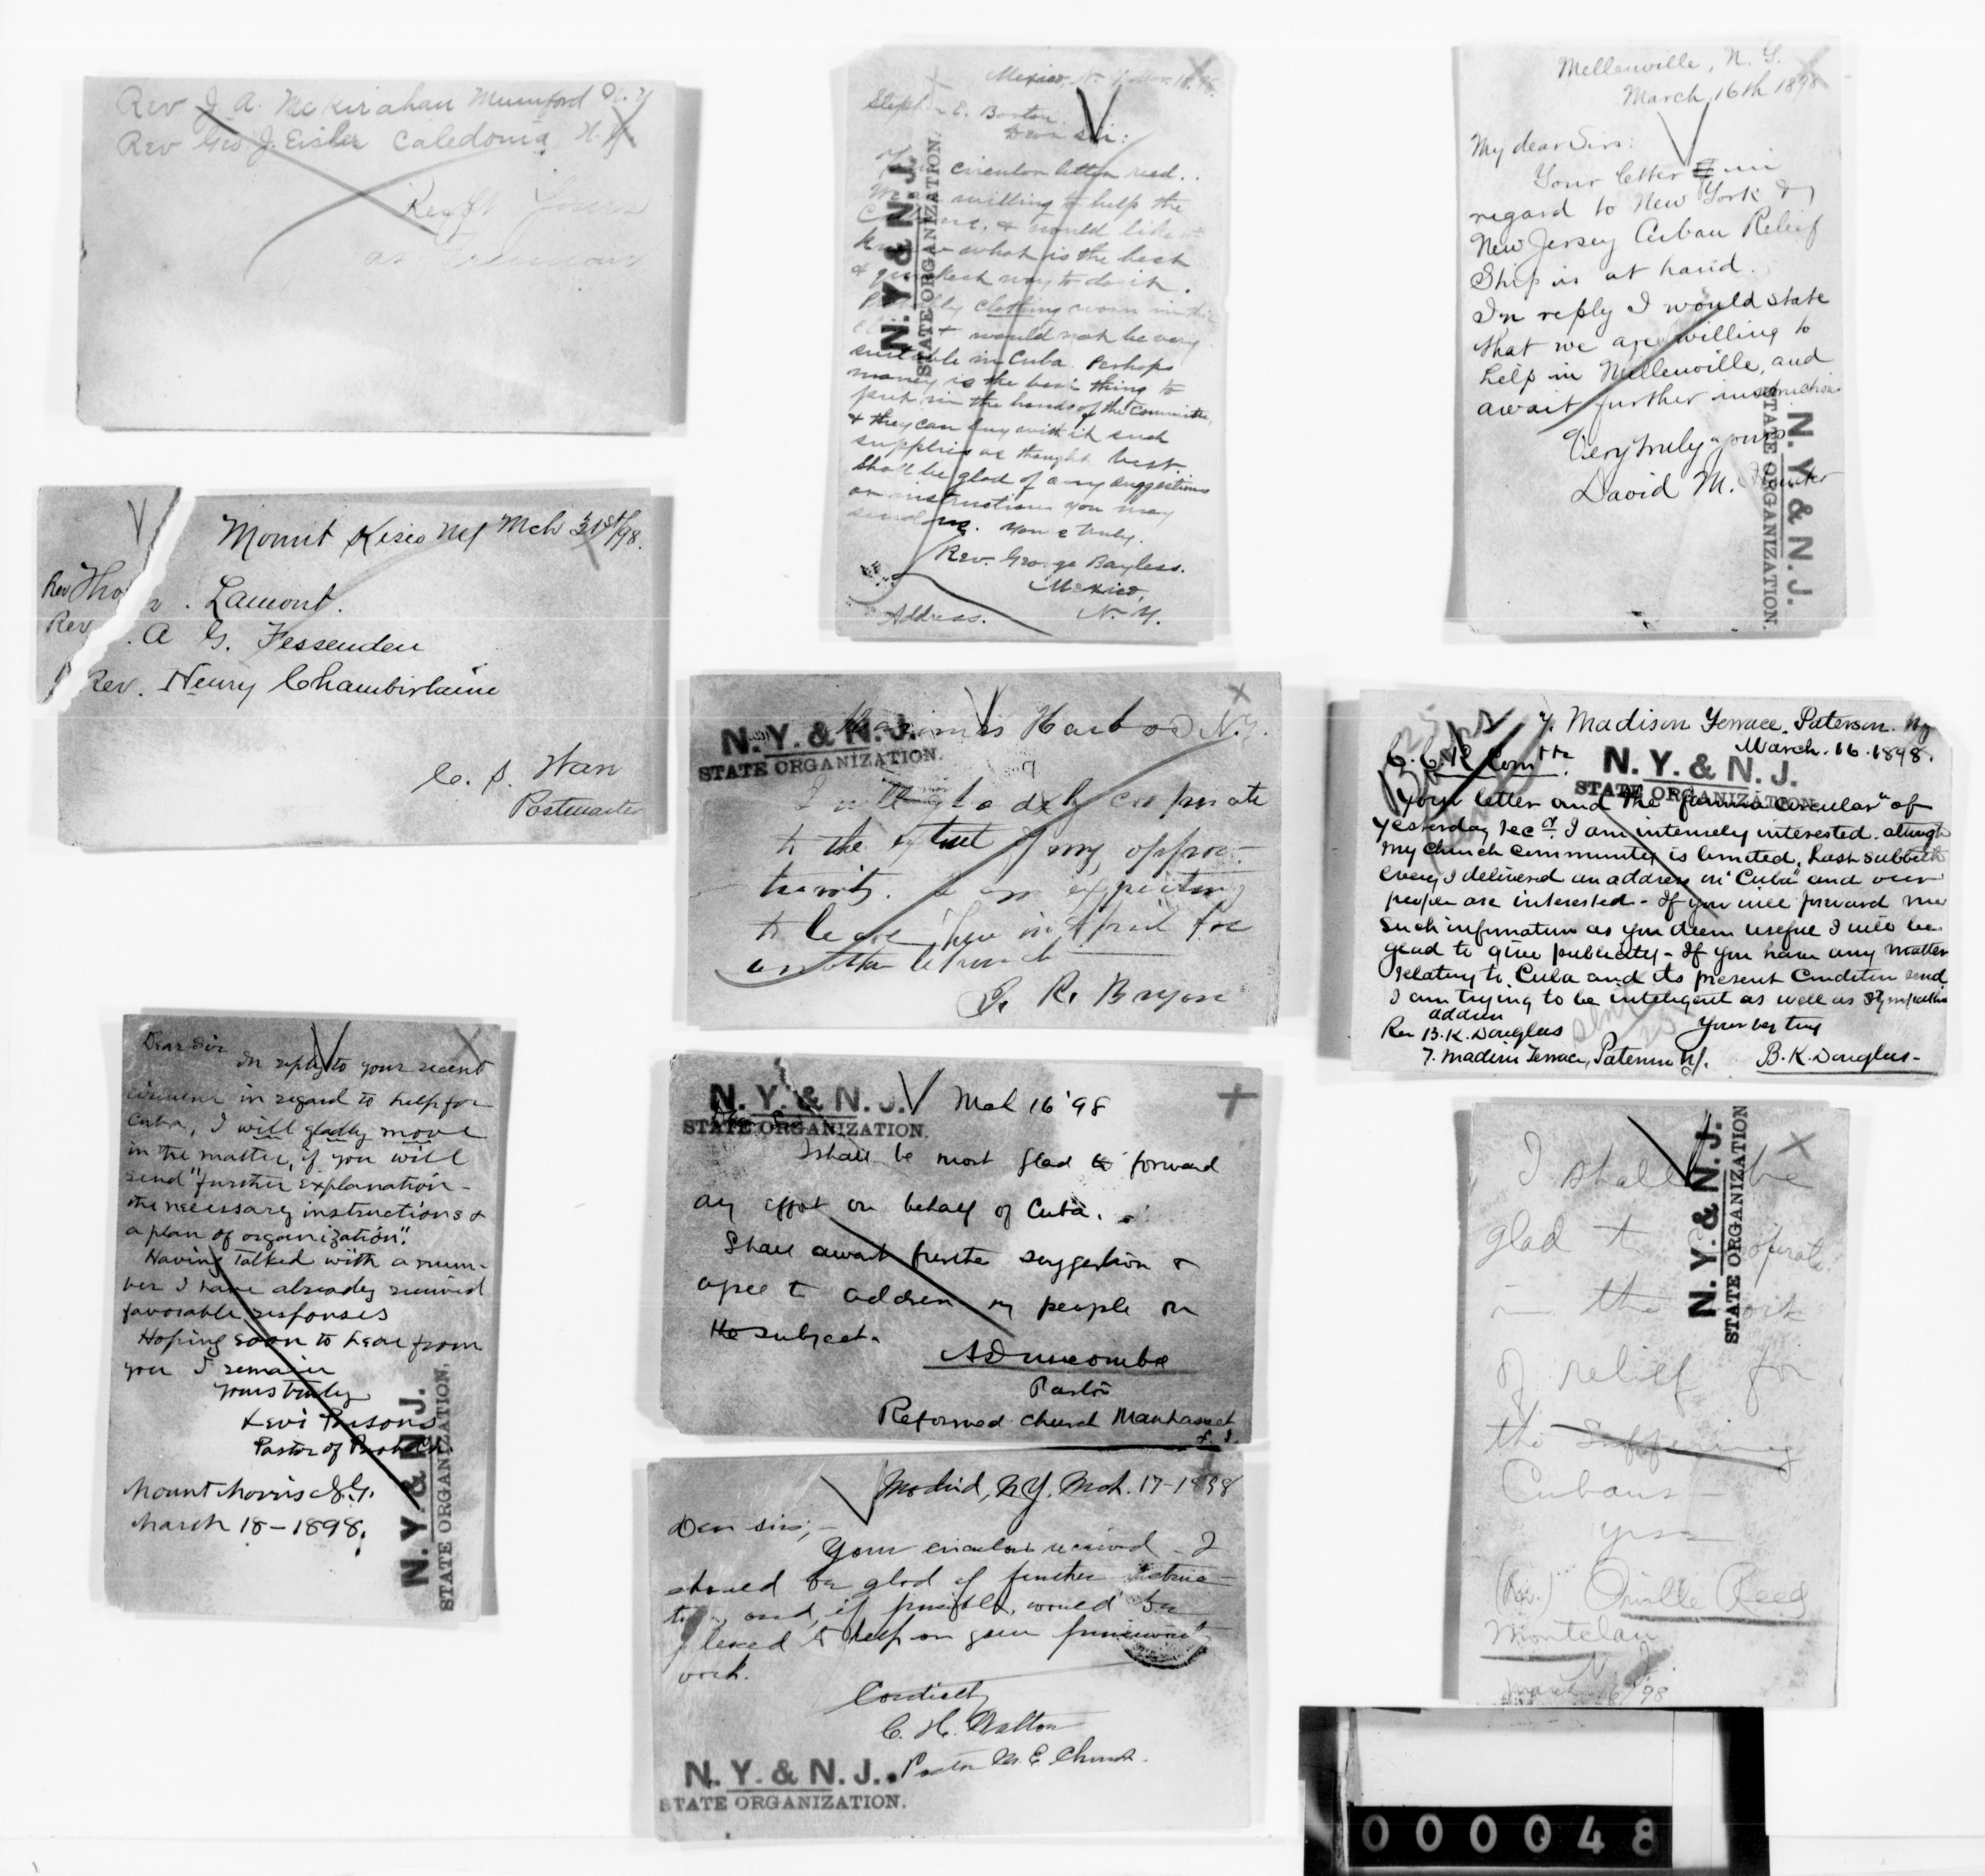 Rev J. A. McKirahan Mumford N.Y
Rev Geo J. Eisler Caledonia N.Y.
Resp Yours
Mount Kisco NY Mch 31st/98.
Rev Tho . Lamont.
Rev. A G. Fessenden
Rev. Henry Chamberlaine
C. S.
Postmaster
Dear Sir
In reply to your recent
circular in regard to help for
Cuba, I will gladly move
in the matter, if you will
send "further explanation -
the necessary instructions &
a plan of organization".
Having talked with a num-
ber I have already received
favorable responses
Hoping soon to hear from
you I remain
Yours truly
Levi Parsons
Pastor of Presb. Ch.
Mount Morris N.Y.
March 18-1898.
N. Y. & N. J.
STATE ORGANIZATION.
Mexico, N. Y. Mar. 18, 98.
Stephen E. Barton.
Dear Sir:
Your circular letter recd..
We are willing to help the
Cubans, & would like to
know what is the best
& quickest way to do it.
Probably clothing worn in this
climate would not be very
suitable in Cuba. Perhaps
money is the best thing to
put in the hands of the Committee,
& they can buy with it such
supplies as thought best.
Shall be glad of any suggestions
or instructions you may
send me. Yours truly.
Rev. George Bayless.
Mexico,
Address. N. Y.
N. Y. & N. J.
STATE ORGANIZATION.
Mariners Harbor N.Y.
N. Y. & N. J.
STATE ORGANIZATION.
I will gladly cooperate
to the extent of my oppor-
tunity. I am expecting
to leave here in April for
another church
R. Bryan
N. Y. & N. J.
STATE ORGANIZATION.
Mch 16 '98
Dear Sir
I shall be most glad to forward
any effort on behalf of Cuba.
Shall await further suggestion &
agree to address my people on
the subject.
A Duncombe
Pastor
Reformed Church Manhasset
L. I.
Madrid, N.Y. Mch. 17-1898
Dear sirs,-
Your circular received - I
should be glad of further instruc-
tion, and, if possible, would be
pleased to help on your
work.
Cordially
C. H. Walton
Pastor M. E. Church.
N. Y. & N. J.
STATE ORGANIZATION.
Mellenville, N. Y.
March 16th 1898
My dear Sirs:
Your letter in
regard to New York &
New Jersey Cuban Relief
Ship is at hand.
In reply I would state
that we are willing to
help in Mellenville, and
await further instructions
Very truly yours
David M. Hunter
N. Y. & N. J.
STATE ORGANIZATION.
7. Madison Terrace, Paterson. NJ
March. 16. 1898.
C. C. R. Comtte.
N. Y. & N. J.
STATE ORGANIZATION.
Your letter and the circular" of
yesterday recd. I am intensely interested. although
my church community is limited. Last Sabbath
eveng I delivered an address on "Cuba" and our
people are interested - If you will forward me
such information as you deem useful I will be
glad to give publicity - If you have any matter
relating to Cuba and its present condition send
I am trying to be inteligent as well as sympathetic
address
Rev B. K. Douglas Your
7. Madison Terrace, Paterson NJ. B. K. Douglas -
I shall be
glad to cooperate
in the work
of relief for
the suffering
Cubans -
Yrs
(Rev.) Orville Reed
Montclair
N. J.
March 16/98
N. Y. & N. J.
STATE ORGANIZATION
000048